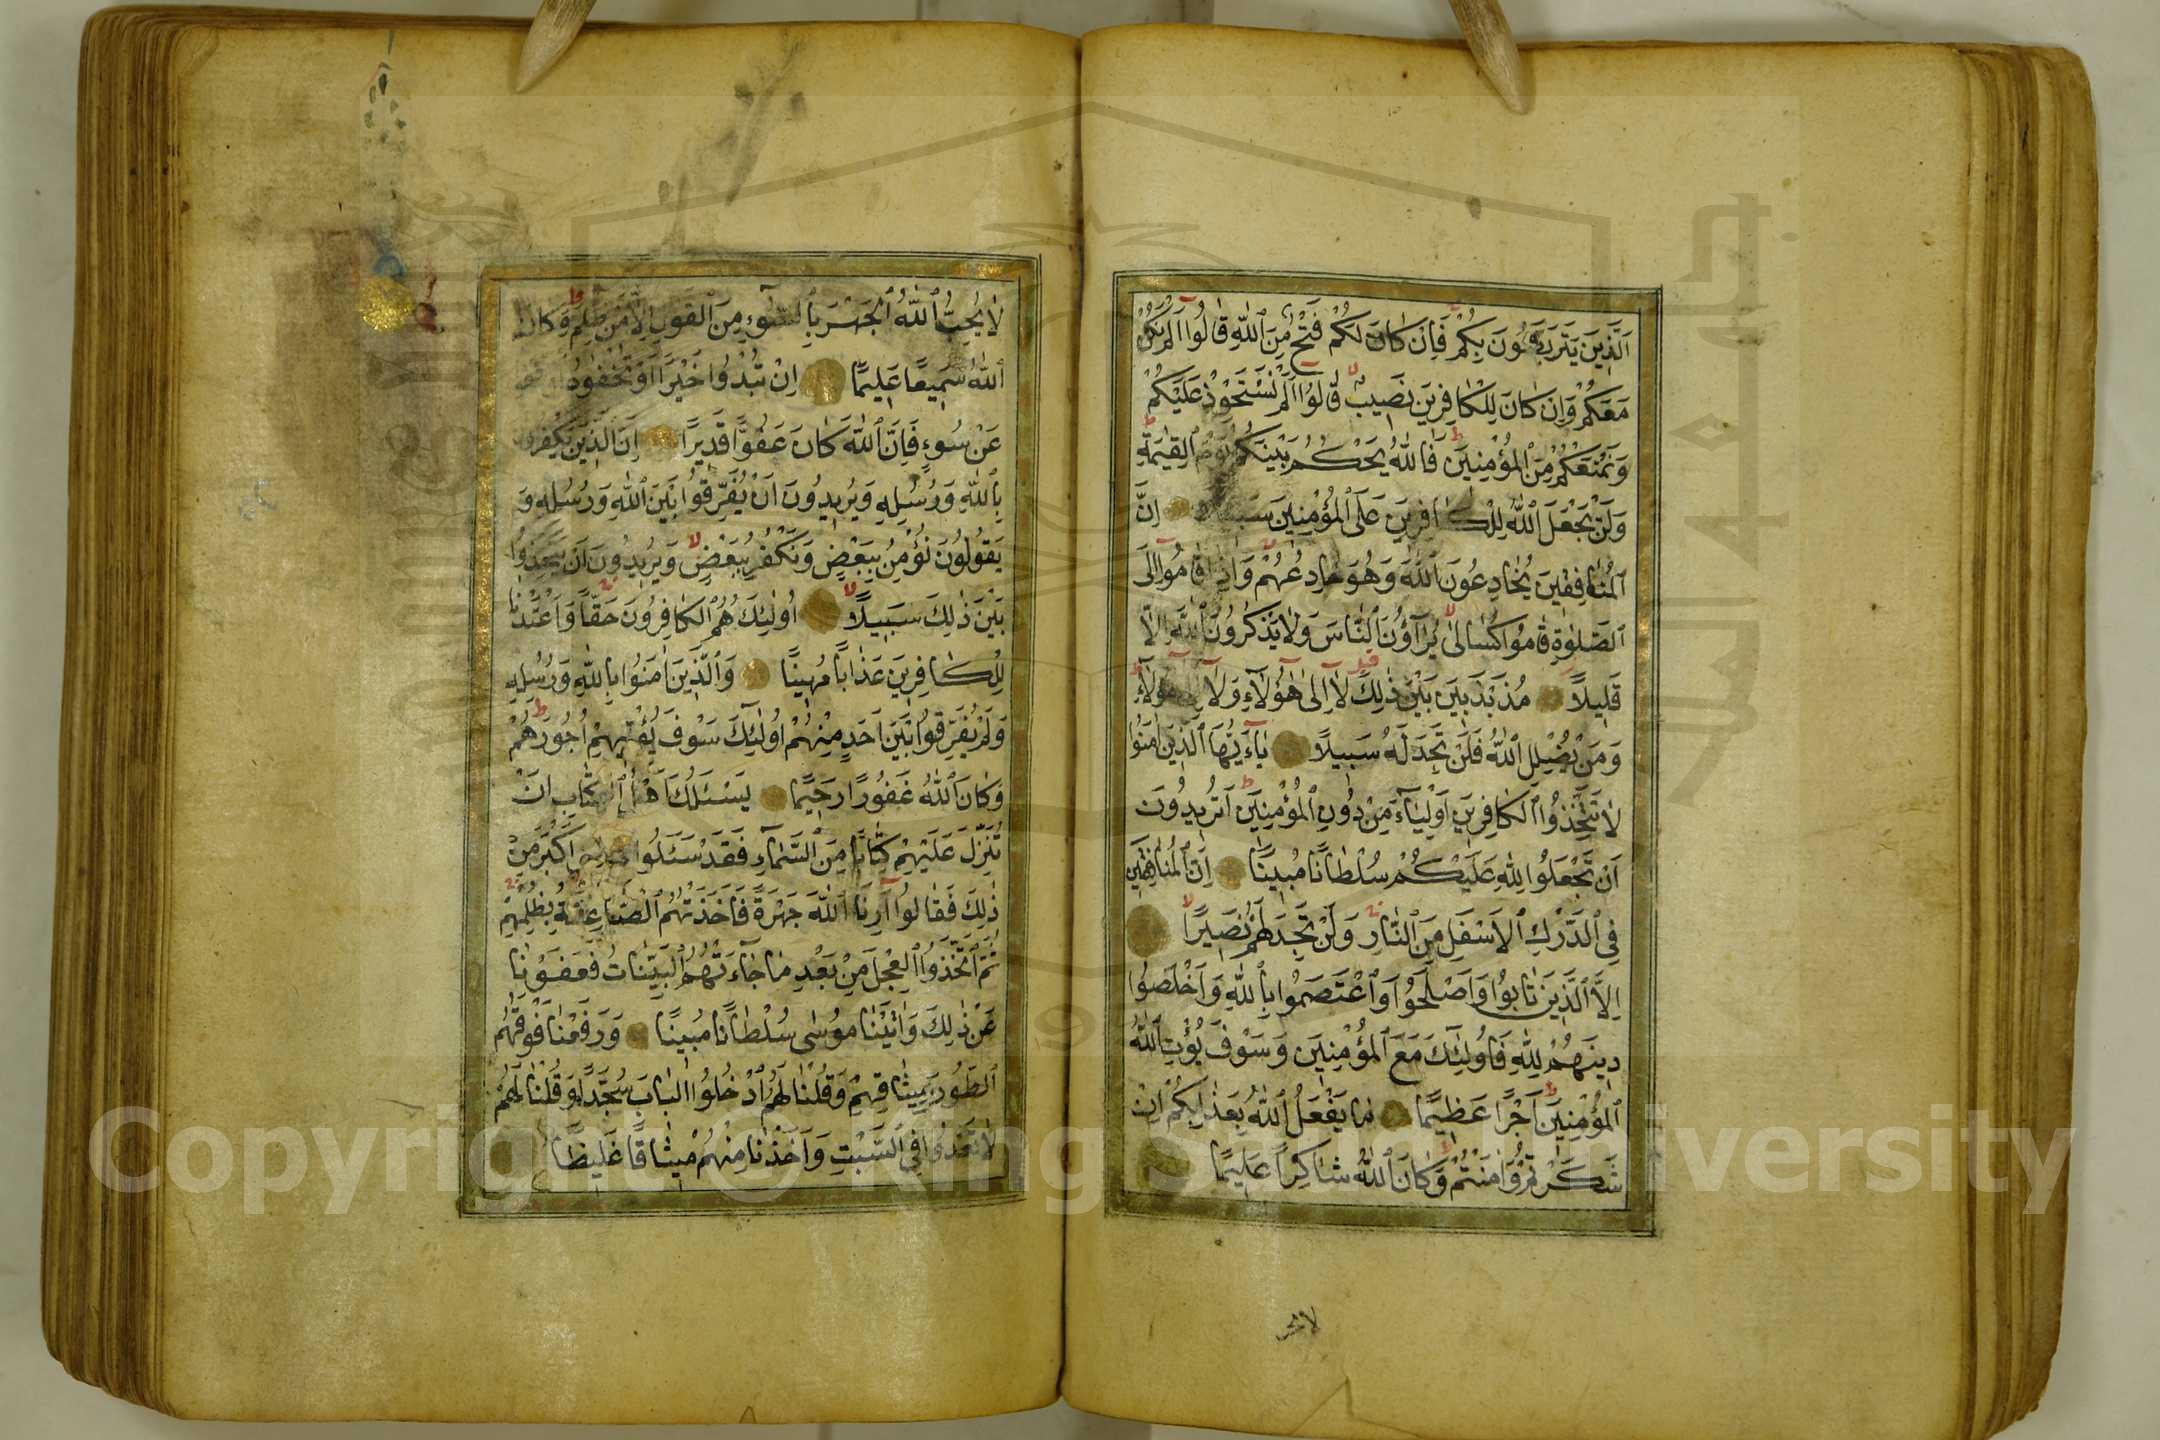 اَلَّذِينَ يَتَرَبَّصُونَ بِكُمْ فَاِنْ كَانَ لَكُمْ فَتْحٌ مِنَ اللّٰهِ قَالُوا اَلَمْ نَكُنْ
مَعَكُمْ وَاِنْ كَانَ لِلْكَافِرِينَ نَصِيبٌ قَالُوا اَلَمْ نَسْتَحْوِذْ عَلَيْكُمْ
وَنَمْنَعْكُمْ مِنَ الْمُؤْمِنِينَ فَاللّٰهُ يَحْكُمُ بَيْنَكُمْ يَوْمَ الْقِيٰمَةِ
وَلَنْ يَجْعَلَ اللّٰهُ لِلْكَافِرِينَ عَلَى الْمُؤْمِنِينَ سَبِيلًا اِنَّ
الْمُنَافِقِينَ يُخَادِعُونَ اللّٰهَ وَهُوَ خَادِعُهُمْ وَاِذَا قَامُوا اِلَى
الصَّلٰوةِ قَامُوا كُسَالٰى يُرَآؤُنَ النَّاسَ وَلَا يَذْكُرُونَ اللّٰهَ اِلَّا
قَلِيلًا مُذَبْذَبِينَ بَيْنَ ذٰلِكَ لَآ اِلٰى هٰؤُلَآءِ وَلَآ اِلٰى هٰؤُلَآءِ
وَمَنْ يُضْلِلِ اللّٰهُ فَلَنْ تَجِدَ لَهُ سَبِيلًا يَآاَيُّهَا الَّذِينَ اٰمَنُوا
لَا تَتَّخِذُوا الْكَافِرِينَ اَوْلِيَآءَ مِنْ دُونِ الْمُؤْمِنِينَ اَتُرِيدُونَ
اَنْ تَجْعَلُوا لِلّٰهِ عَلَيْكُمْ سُلْطَانًا مُبِينًا اِنَّ الْمُنَافِقِينَ
فِي الدَّرْكِ الْاَسْفَلِ مِنَ النَّارِ وَلَنْ تَجِدَ لَهُمْ نَصِيرًا
اِلَّا الَّذِينَ تَابُوا وَاَصْلَحُوا وَاعْتَصَمُوا بِاللّٰهِ وَاَخْلَصُوا
دِينَهُمْ لِلّٰهِ فَاُولٰئِكَ مَعَ الْمُؤْمِنِينَ وَسَوْفَ يُؤْتِ اللّٰهُ
الْمُؤْمِنِينَ اَجْرًا عَظِيمًا مَا يَفْعَلُ اللّٰهُ بِعَذَابِكُمْ اِنْ
شَكَرْتُمْ وَاٰمَنْتُمْ وَكَانَ اللّٰهُ شَاكِرًا عَلِيمًا
لا يحب
لَا يُحِبُّ اللّٰهُ الْجَهْرَ بِالسُّوٓءِ مِنَ الْقَوْلِ اِلَّا مَنْ ظُلِمَ وَكَانَ
اللّٰهُ سَمِيعًا عَلِيمًا اِنْ تُبْدُوا خَيْرًا اَوْ تُخْفُوهُ اَوْ تَعْفُوا
عَنْ سُوٓءٍ فَاِنَّ اللّٰهَ كَانَ عَفُوًّا قَدِيرًا اِنَّ الَّذِينَ يَكْفُرُونَ
بِاللّٰهِ وَرُسُلِهِ وَيُرِيدُونَ اَنْ يُفَرِّقُوا بَيْنَ اللّٰهِ وَرُسُلِهِ وَ
يَقُولُونَ نُؤْمِنُ بِبَعْضٍ وَنَكْفُرُ بِبَعْضٍ وَيُرِيدُونَ اَنْ يَتَّخِذُوا
بَيْنَ ذٰلِكَ سَبِيلًا اُولٰئِكَ هُمُ الْكَافِرُونَ حَقًّا وَاَعْتَدْنَا
لِلْكَافِرِينَ عَذَابًا مُهِينًا وَالَّذِينَ اٰمَنُوا بِاللّٰهِ وَرُسُلِهِ
وَلَمْ يُفَرِّقُوا بَيْنَ اَحَدٍ مِنْهُمْ اُولٰئِكَ سَوْفَ يُؤْتِيهِمْ اُجُورَهُمْ
وَكَانَ اللّٰهُ غَفُورًا رَحِيمًا يَسْئَلُكَ اَهْلُ الْكِتَابِ اَنْ
تُنَزِّلَ عَلَيْهِمْ كِتَابًا مِنَ السَّمَآءِ فَقَدْ سَئَلُوا مُوسٰى اَكْبَرَ مِنْ
ذٰلِكَ فَقَالُوا اَرِنَا اللّٰهَ جَهْرَةً فَاَخَذَتْهُمُ الصَّاعِقَةُ بِظُلْمِهِمْ
ثُمَّ اتَّخَذُوا الْعِجْلَ مِنْ بَعْدِ مَا جَآءَتْهُمُ الْبَيِّنَاتُ فَعَفَوْنَا
عَنْ ذٰلِكَ وَاٰتَيْنَا مُوسٰى سُلْطَانًا مُبِينًا وَرَفَعْنَا فَوْقَهُمُ
الطُّورَ بِمِيثَاقِهِمْ وَقُلْنَا لَهُمُ ادْخُلُوا الْبَابَ سُجَّدًا وَقُلْنَا لَهُمْ
لَا تَعْدُوا فِي السَّبْتِ وَاَخَذْنَا مِنْهُمْ مِيثَاقًا غَلِيظًا
Copyright © King Saud University